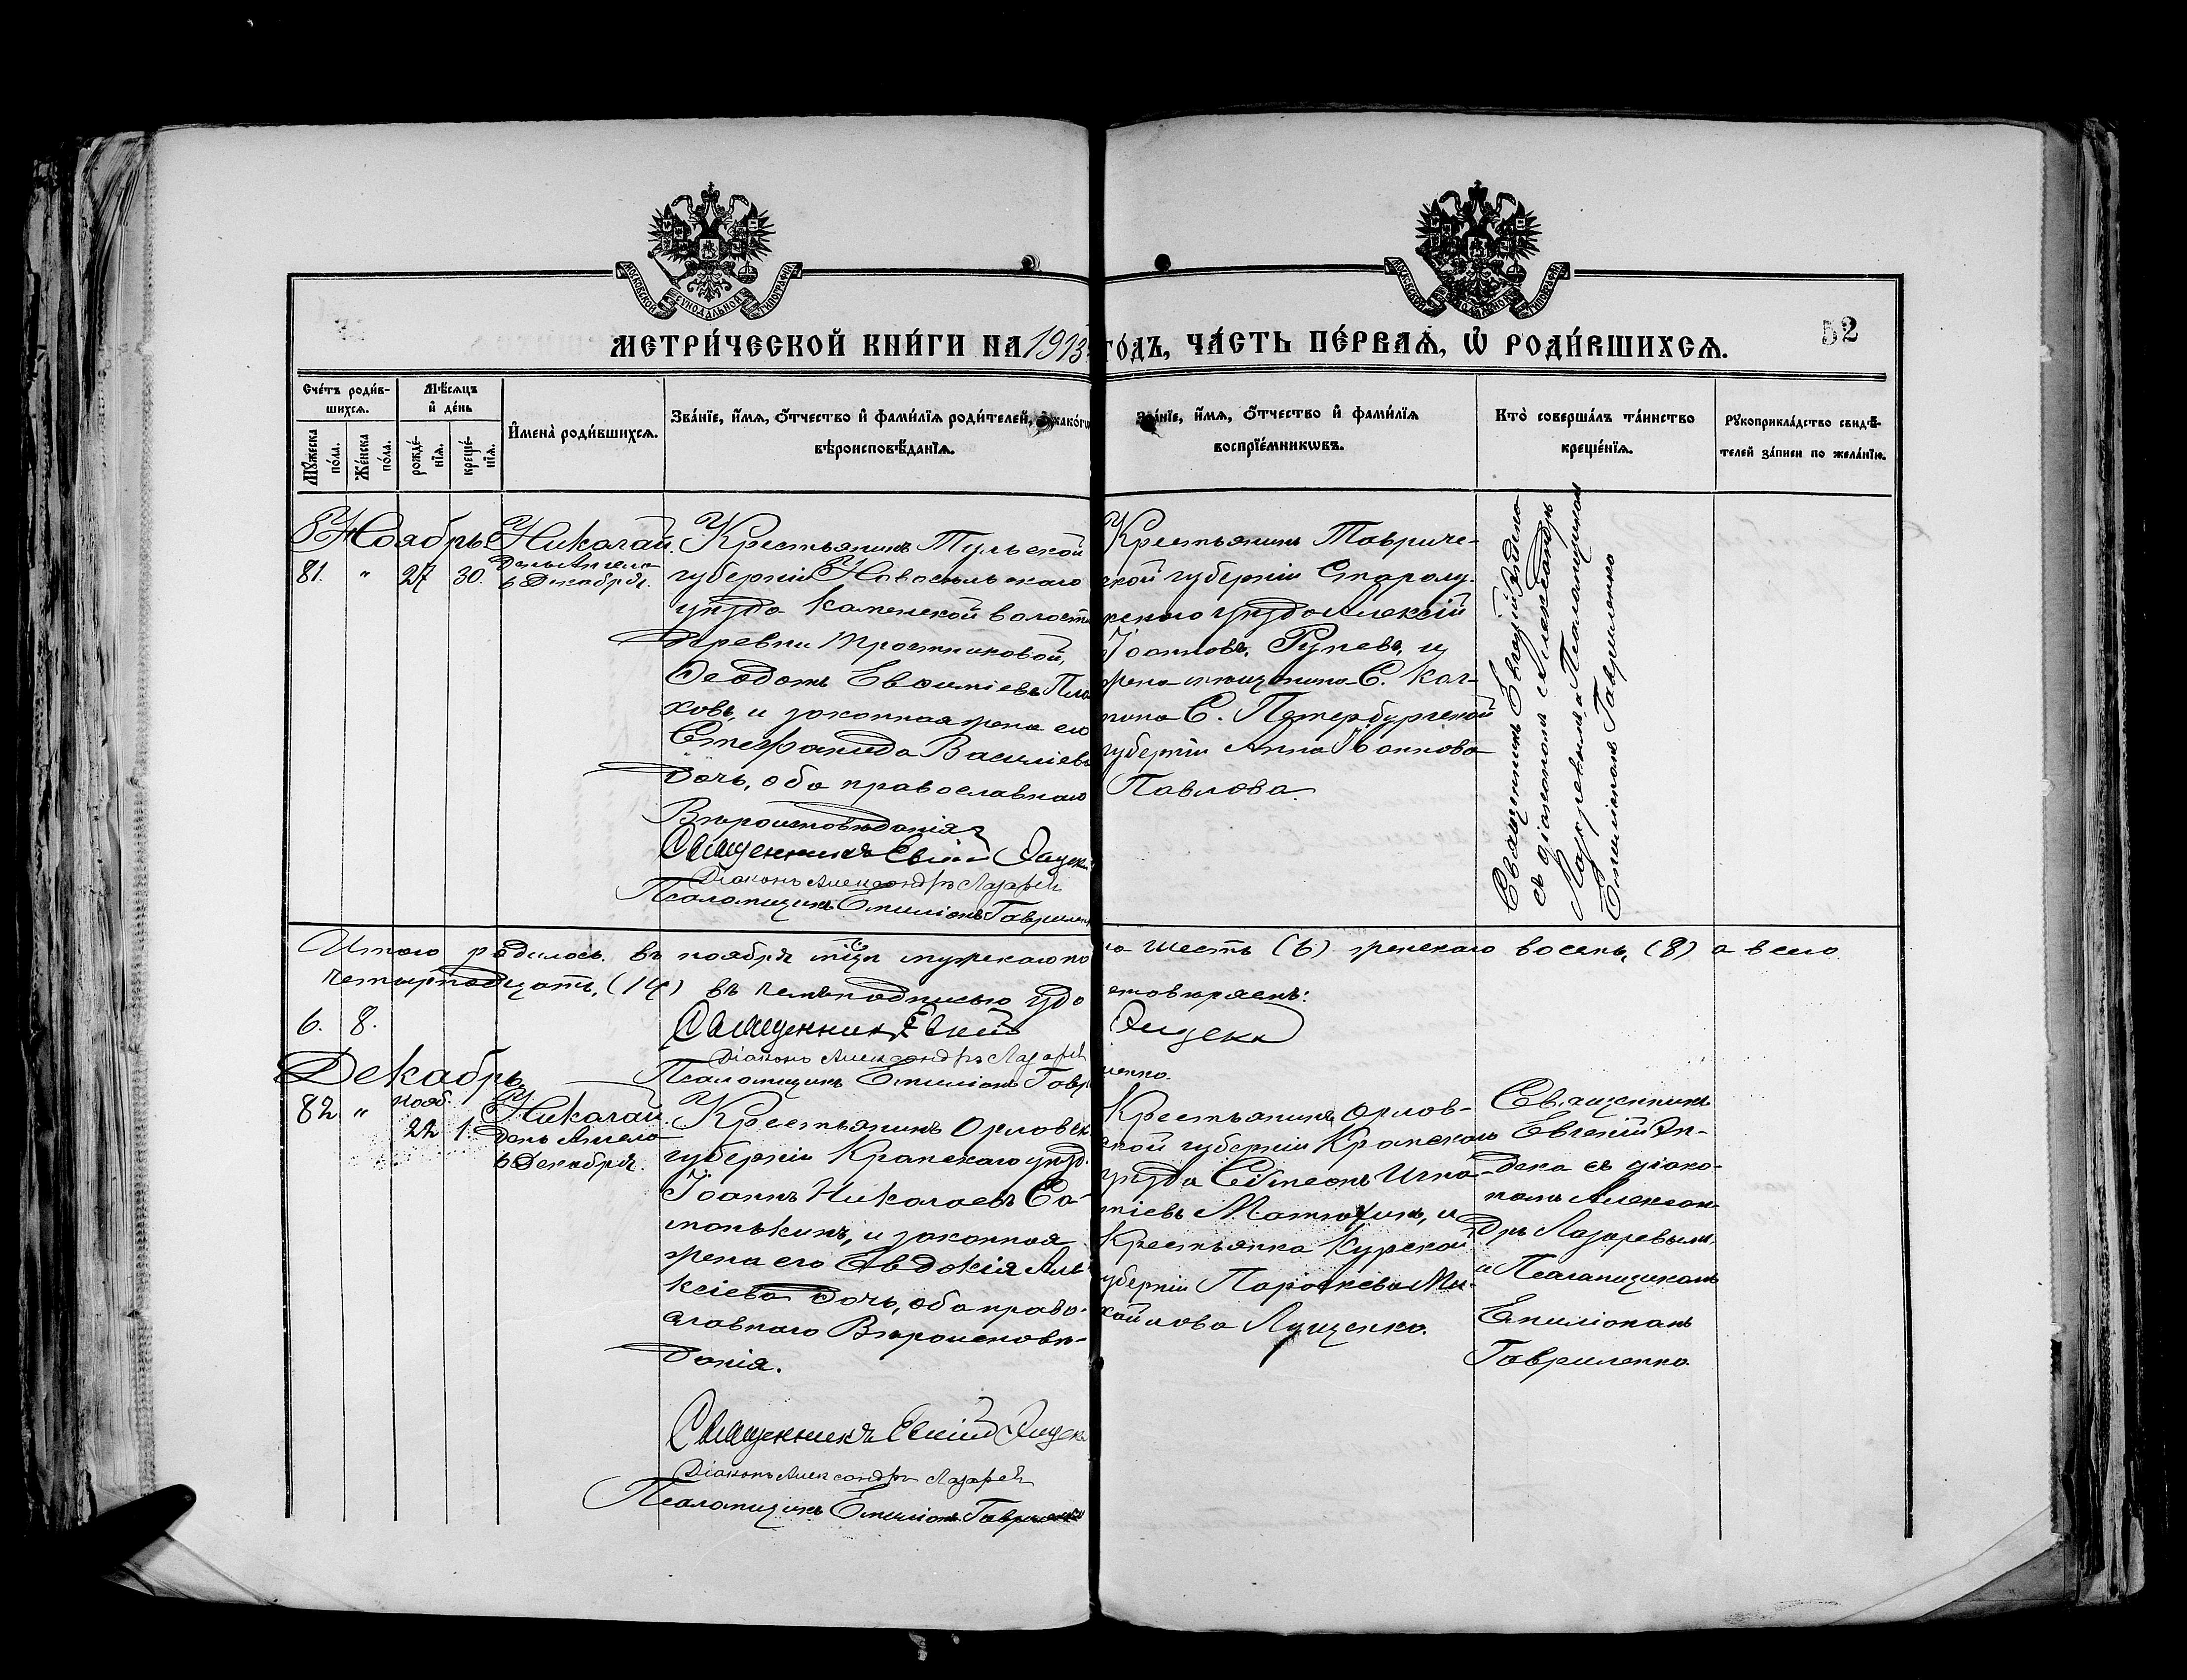 МОСКОВСКОЙ СѴНОДАЛЬНОЙ ТИПОГРАФІИ
МОСКОВСКОЙ СѴНОДАЛЬНОЙ ТИПОГРАФІИ
МЕТРИ́ЧЕСКОЙ КНИ́ГИ НА 1913 ГО́ДЪ, ЧА́СТЬ ПЕ́РВАѦ, Ѡ҆ РОДИ́ВШИХСѦ.
52
Сче́тъ роди́в-
шихсѧ.
Мѣ́сѧцъ
и҆ де́нь
Мꙋ́жеска по́ла.
Же́нска по́ла.
рожде́-
нїѧ.
креще́-
нїѧ.
И҆мена̀ роди́вшихсѧ.
Зва́нїе, и҆́мѧ, ѻ҆́тчество и҆ фами́лїѧ роди́телей, и҆ како́гѡ
вѣроисповѣ́данїѧ.
Зва́нїе, и҆́мѧ, ѻ҆́тчество и҆ фами́лїѧ
воспрїе́мникѡвъ.
Кто̀ соверша́лъ та́инство
креще́нїѧ.
Рꙋкоприкла́дство свидѣ́-
телей за́писи по жела́нїю.
Ноябрь
81. " 27 30.
Николай
День Ангела
6 Декабря.
Крестьянинъ Тульской
губерніи Новосильскаго
уѣзда Каменской волости
деревни Тростниковой,
Ѳеодотъ Евѳиміевъ Пла
ховъ, и законная жена его
Стефанида Василіева
дочь, оба православнаго
Вѣроисповѣданія
Священникъ Евгеній
Діаконъ Александръ Лазарев
Псаломщикъ Емиліонъ Гаврилен
Крестьянинъ Тавриче-
ской губерніи
уѣзда Алексій
Іоанновъ, и
жена мѣщанина С. Кол-
пина С. Петербургской
губерніи Анна Іоаннова
Павлова.
Священникъ Евгеній
съ діакономъ Александръ
Лазаревымъ и Псаломщикомъ
Емиліономъ Гавриленко
Итого родилось въ ноябрѣ мѣсяцѣ мужскаго по ла шесть (6) женскаго восемь, (8) а всего
четырнадцать, (14) въ чемъ подписью удо стовѣряемъ:
6. 8.
Священникъ Евгеній
Діаконъ Александръ Лазарев
Псаломщикъ Емиліонъ Гаври ленко.
Декабрь
82 " нояб.
22 1.
Николай
День Ангела
6 Декабря.
Крестьянинъ Орловск
губерніи Кромскаго уѣзд.
Іоаннъ Николаевъ Са-
монькинъ, и законная
жена его Евдокія Але
ксіева дочь, оба право-
славнаго Вѣроисповѣ-
данія.
Священникъ Евгеній
Діаконъ Александръ Лазарев
Псаломщикъ Емиліонъ Гавриленко
Крестьянинъ Орлов-
ской губерніи Кромскаго
уѣзда Симеонъ Игна-
тіевъ Матюхинъ, и
Крестьянка Курской
губерніи Параскева Ми-
хайлова Лущенко.
Священникъ
Евгеній
съ діако-
номъ Алексан-
дръ Лазаревымъ,
и Псаломщикомъ
Емиліономъ
Гавриленко.